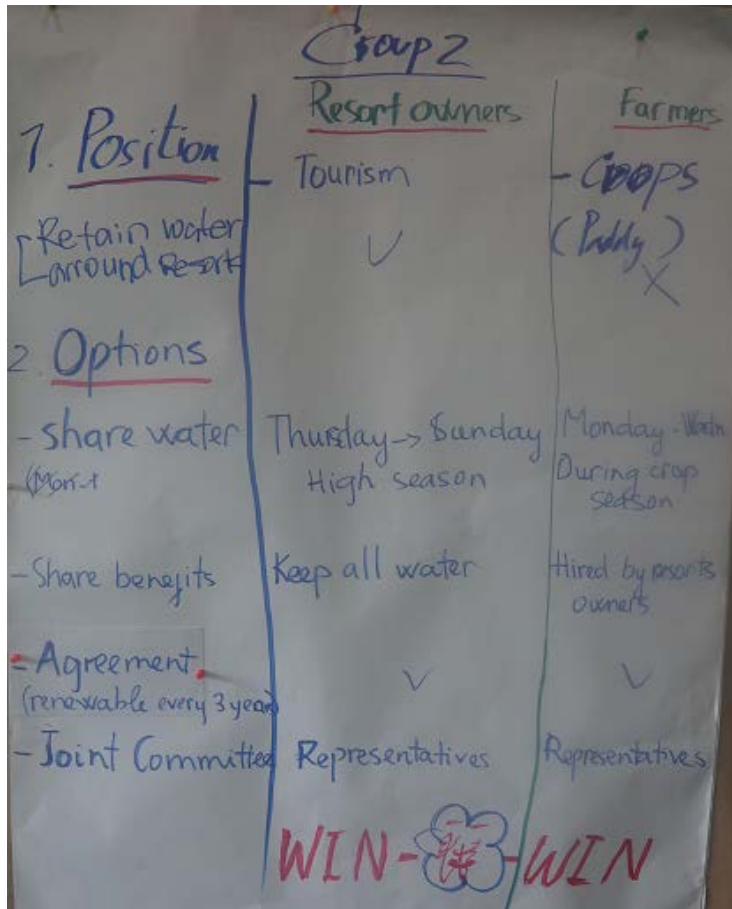 Group 2
Resort owners
Farmers
1. Position
- Tourism
- Crops
(Paddy)
Retain water
arround Resorts
2. Options
- share water
Thursday -> Sunday
Monday -
High season
During crop
season
- Share benefits
Keep all water
Hired by resorts
owners
- Agreement
(renewable every 3 year
- Joint Committee
Representatives
Representatives
WIN - - WIN